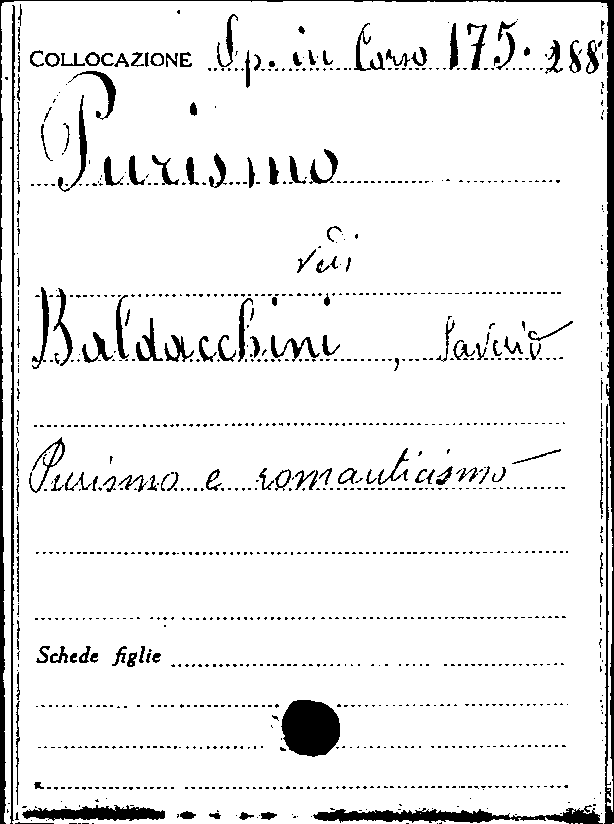 COLLOCAZIONE Op. in Corso 175. 288
Purismo
vedi
Baldacchini, Saverio
Purismo e romanticismo
Schede figlie